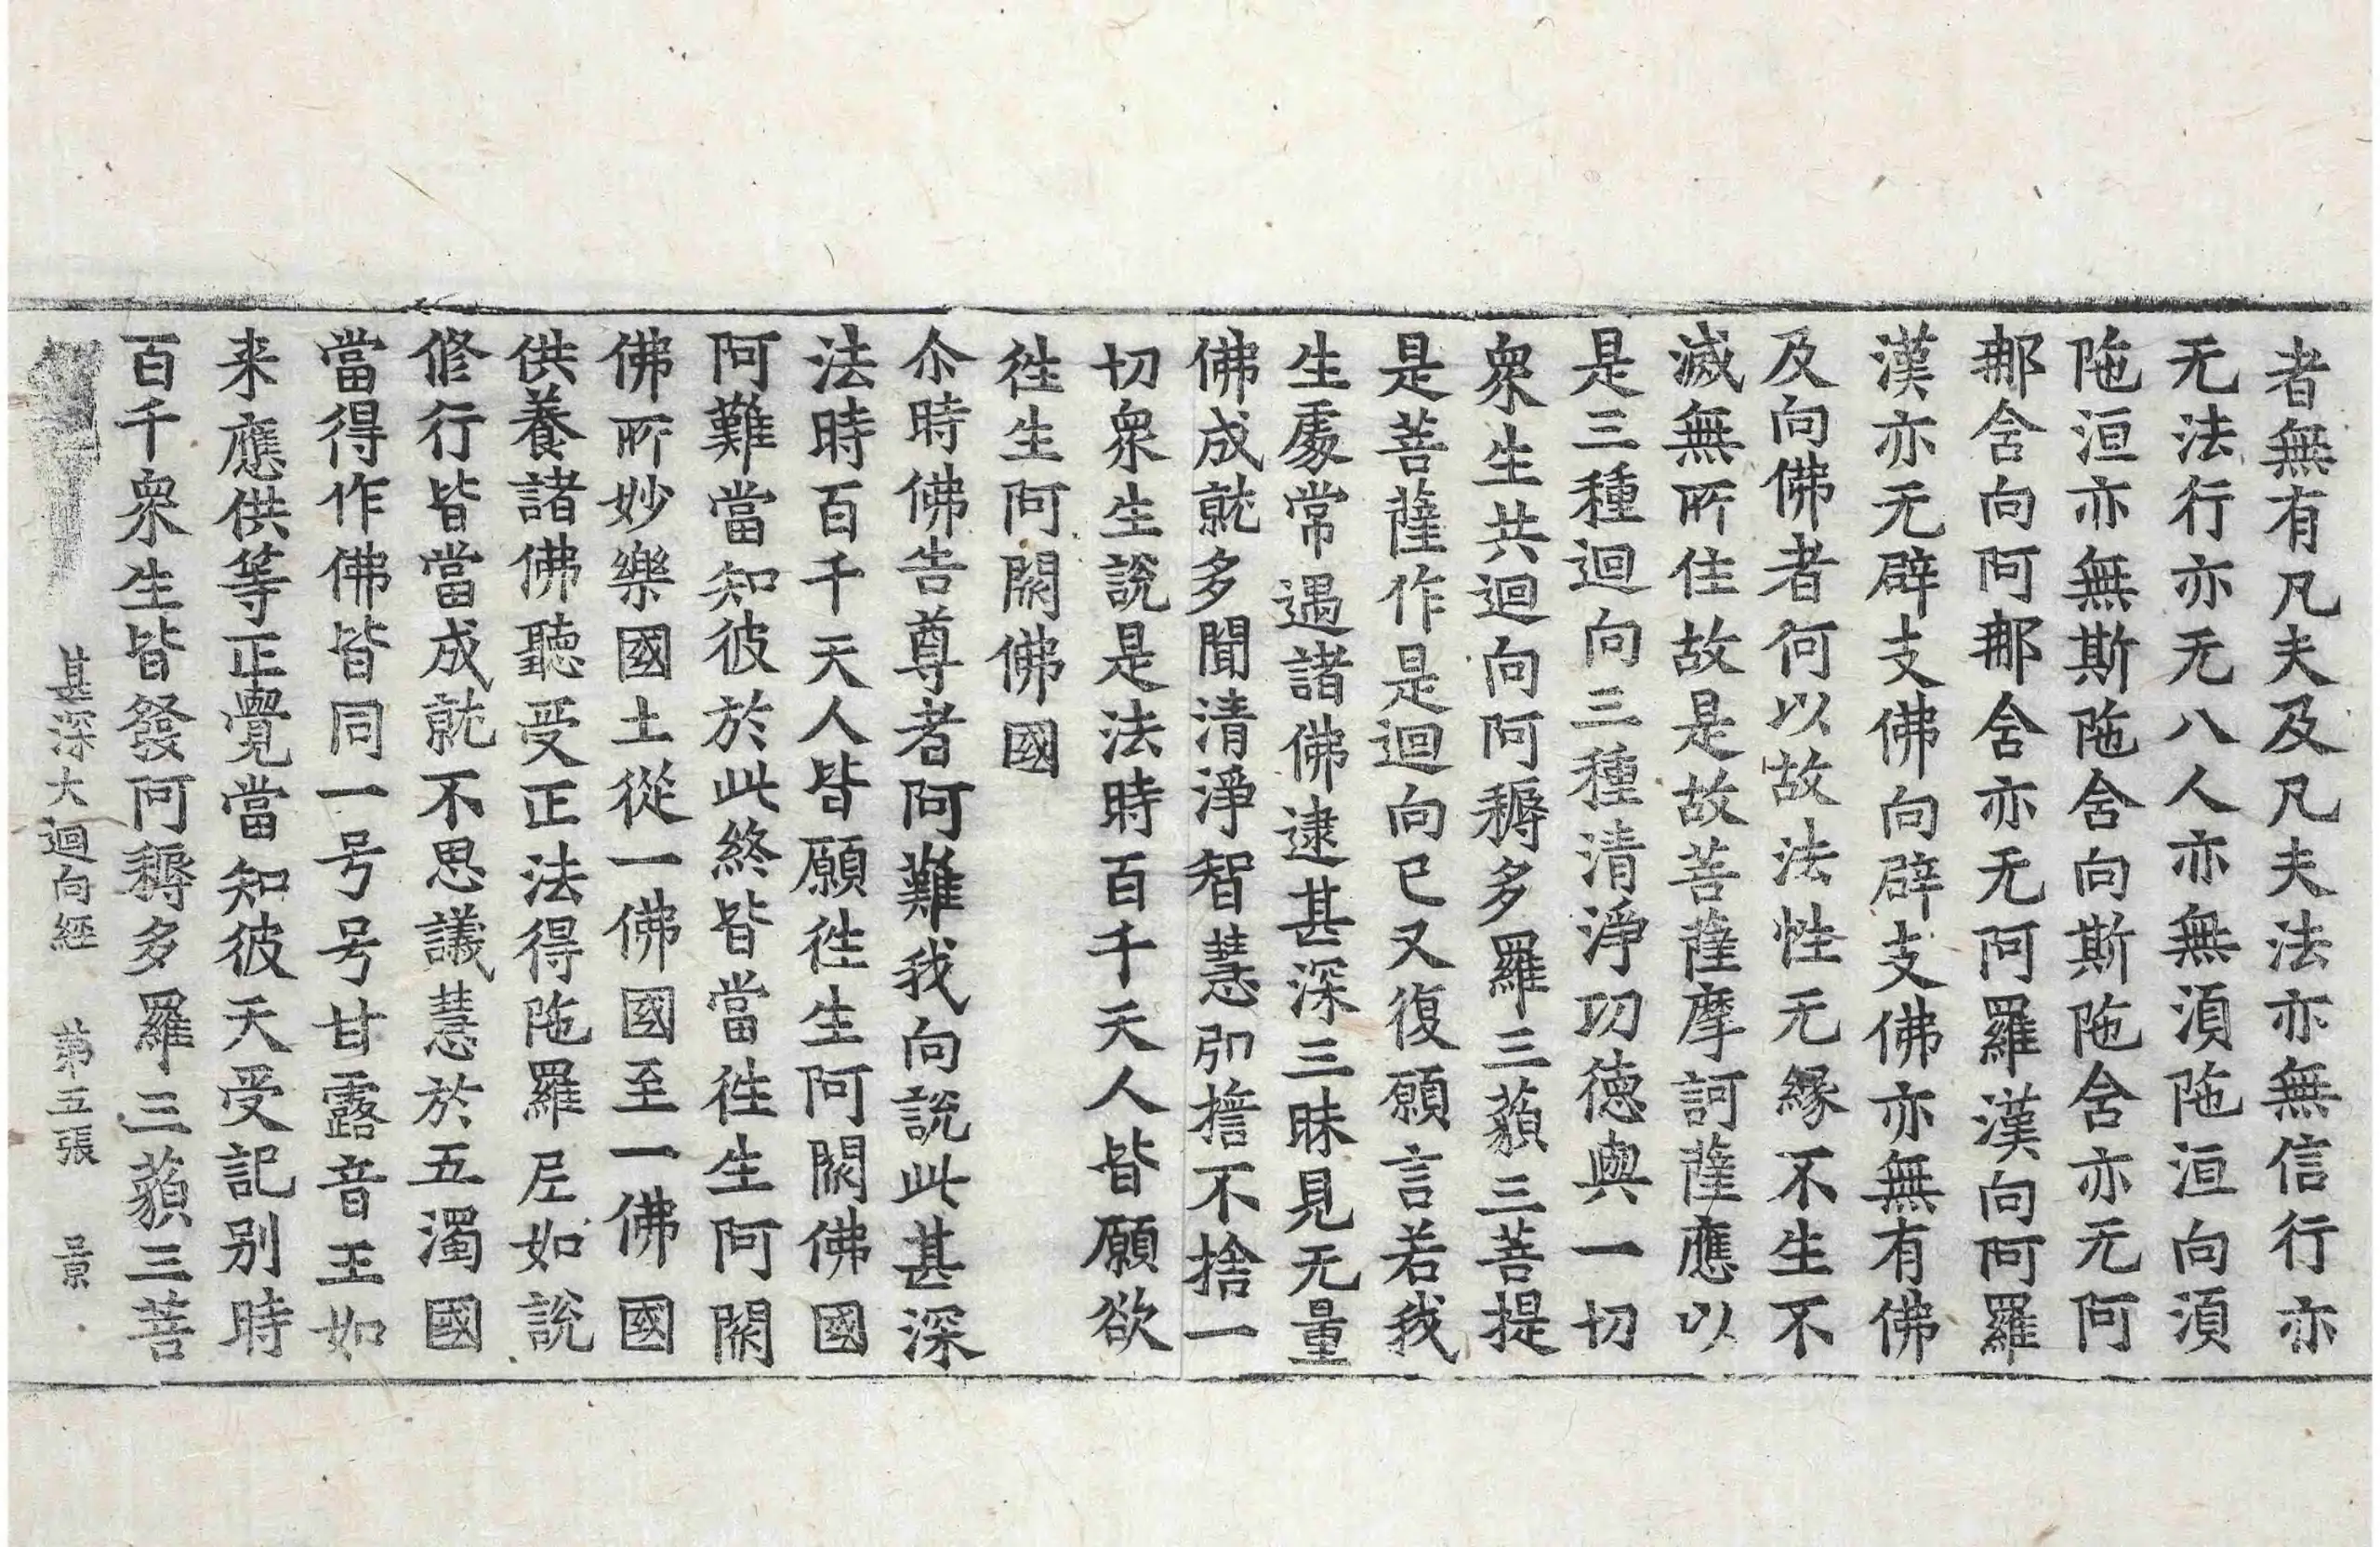 者無有凡夫及凡夫法亦無信行亦
无法行亦无八人亦無湏陁洹向湏
陁洹亦無斯陁含向斯陁含亦无阿
那含向阿那含亦无阿羅漢向阿羅
漢亦无辟支佛向辟支佛亦無有佛
及向佛者何以故法性无緣不生不
滅無所住故是故菩薩摩訶薩應以
是三種迴向三種清淨功德與一切
衆生共迴向阿耨多羅三藐三菩提
是菩薩作是迴向已又復願言若我
生處常遇諸佛逮甚深三昧見无量
佛成就多聞清淨智慧即擔不捨一
切衆生說是法時百千天人皆願欲
徃生阿閦佛國
尒時佛告尊者阿難我向說此甚深
法時百千天人皆願徃生阿閦佛國
阿難當知彼於此終皆當徃生阿閦
佛所妙樂國土從一佛國至一佛國
供養諸佛聽受正法得陁羅尼如說
修行皆當成就不思議慧於五濁國
當得作佛皆同一号号甘露音王如
来應供等正覺當知彼天受記别時
百千衆生皆發阿耨多羅三藐三菩
甚深大迴向經 第五張 景